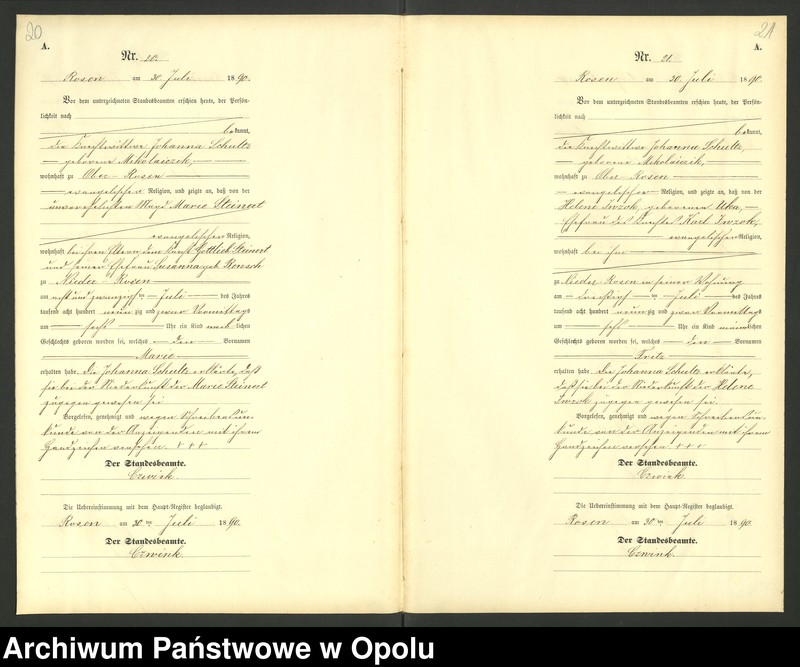 20
A.
Nr. 20.
Rosen am 30 Juli 1890.
Vor dem unterzeichneten Standesbeamten erschien heute, der Persön-
lichkeit nach
bekannt,
die Johanna Schultz
geborene Mikolaiczek,
wohnhaft zu Ober-Rosen
evangelischer Religion, und zeigte an, daß von der
unverehelichten Magd Marie Steinert
evangelischer Religion,
wohnhaft bei ihren Eltern dem Gottlieb Steinert
und seiner Ehefrau Susanna geb.
zu Nieder-Rosen
am acht und zwanzigsten Juli des Jahres
tausend acht hundert neunzig und zwar Vormittags
um sechs Uhr ein Kind weiblichen
Geschlechts geboren worden sei, welches den Vornamen
Marie
erhalten habe. Die Johanna Schultz erklärte, daß
sie bei der Niederkunft der Marie Steinert
zugegen gewesen sei
Vorgelesen, genehmigt und wegen Schreibensun-
kunde von der Anzeigenden mit ihrem
Handzeichen versehen. + + +
Der Standesbeamte.
Czwink.
Die Uebereinstimmung mit dem Haupt-Register beglaubigt.
Rosen am 30 ten Juli 1890.
Der Standesbeamte.
Czwink.
21
A.
Nr. 21.
Rosen am 30. Juli 1890.
Vor dem unterzeichneten Standesbeamten erschien heute, der Persön-
lichkeit nach
bekannt,
die Johanna Schultz,
geborene Mikolaiczik,
wohnhaft zu Ober-Rosen
evangelischer Religion, und zeigte an, daß von der
Helene geborenen
Ehefrau des Karl
evangelischer Religion,
wohnhaft bei ihm
zu Nieder-Rosen in seiner Wohnung
am dreißigsten Juli des Jahres
tausend acht hundert neunzig und zwar Vormittags
um Uhr ein Kind männlichen
Geschlechts geboren worden sei, welches den Vornamen
Fritz
erhalten habe. Die Johanna Schultz erklärte,
daß sie bei der Niederkunft der Helene
zugegen gewesen sei.
Vorgelesen, genehmigt und wegen Schreibensun-
kunde von der Anzeigenden mit ihrem
Handzeichen versehen. + + +
Der Standesbeamte.
Czwink.
Die Uebereinstimmung mit dem Haupt-Register beglaubigt.
Rosen am 30 ten Juli 1890.
Der Standesbeamte.
Czwink.
Archiwum Państwowe w Opolu